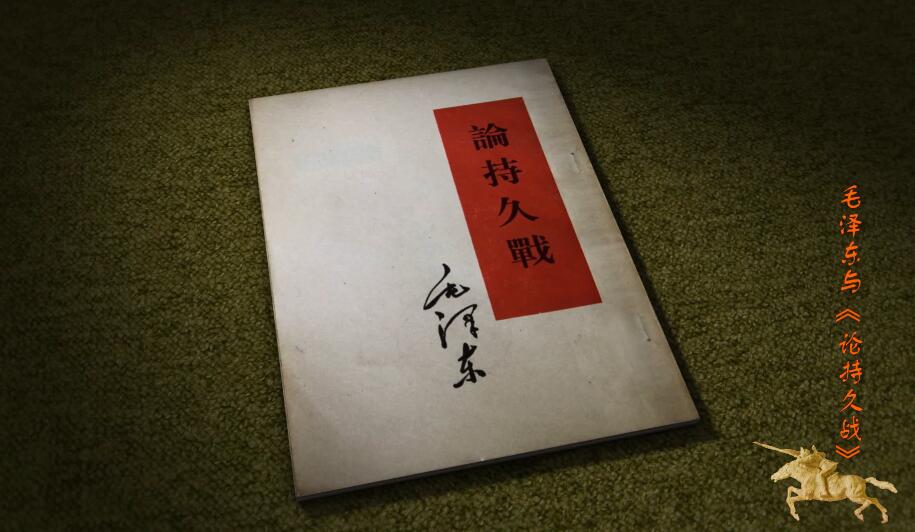 論持久戰
毛泽东
毛泽东与《论持久战》